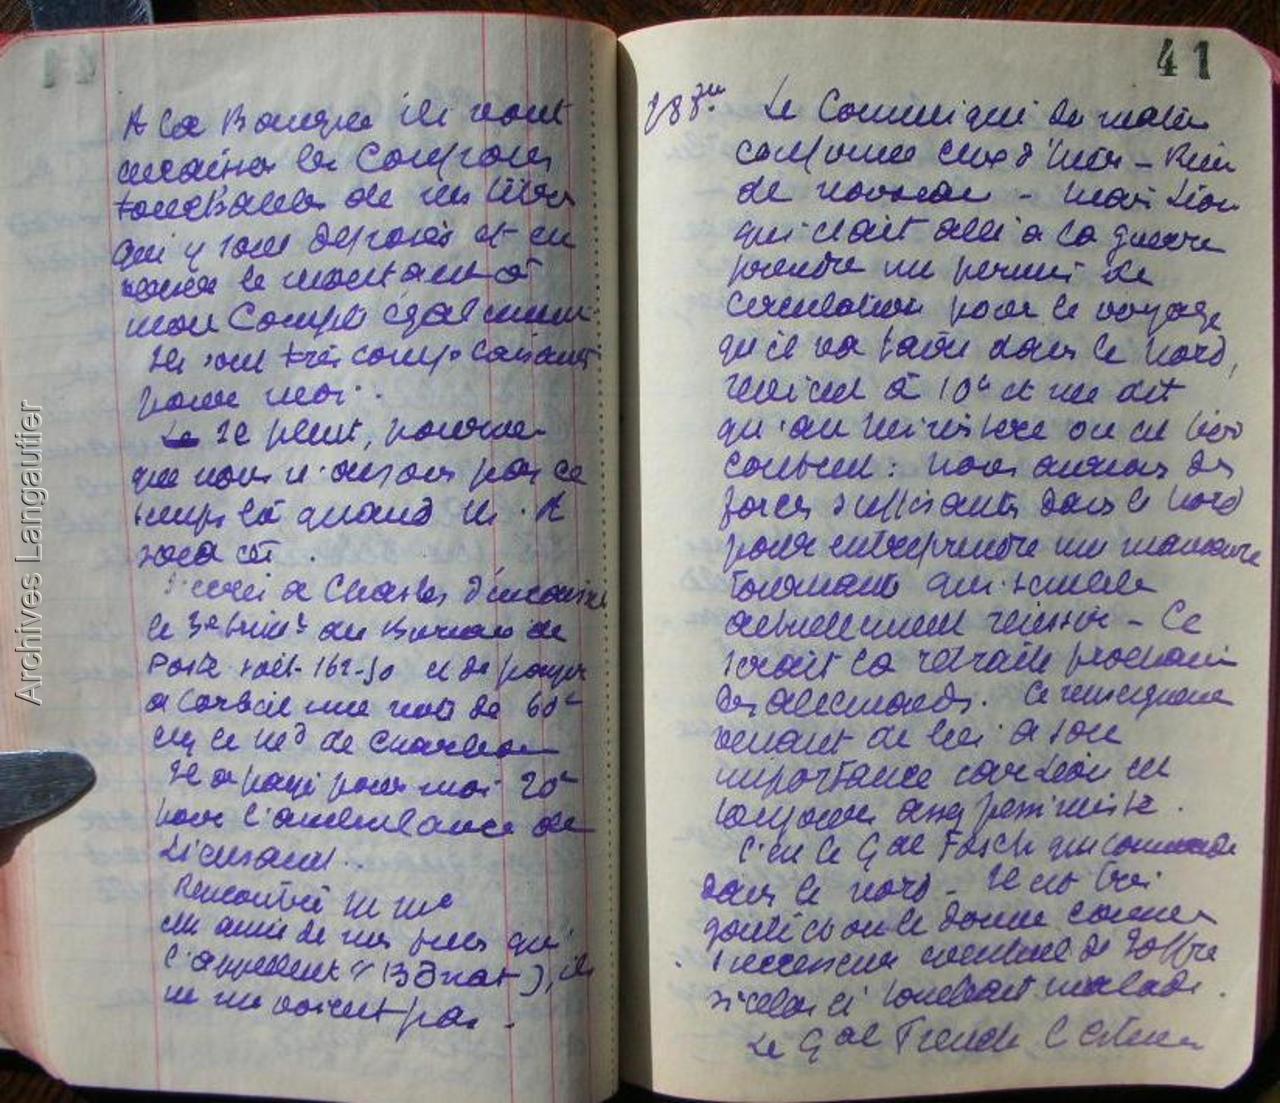 A la Banque ils vont
encaisser les coupons
touchables de mes titres
qui y sont déposés et en
le montant à
mon Compte également
Ils sont très complaisants
pour moi.
Il pleut, pourvu
que nous n'ayons pas ce
temps là quand M. A
sera ici.
J'écris à Charles d'encaisser
le 3e trimre au Bureau de
Poste soit 162-50 et de payer
à Corbeil une note de 60f
au md de charbon
Il a payé pour moi 20f
pour l'ambulance de
Lieusaint.
Rencontré M Me
un amie de mes filles qui
l'appellent (Bonat), ils
ne me voient pas.
41
Le Communiqué du matin
confirme ceux d'hier - Rien
de nouveau - mais Léon
qui était allé à la guerre
prendre un permis de
circulation pour le voyage
qu'il va faire dans le Nord,
revient à 10h et me dit
qu'au Ministère on est très
content : nous aurions des
forces suffisantes dans le Nord
pour entreprendre un mouvement
tournant qui semble
actuellement réussir - Ce
serait la retraite prochaine
des allemands. Ce renseignement
venant de lui a son
importance car Léon est
toujours assez pessimiste.
C'est le Gal Fosch qui commande
dans le nord - Il est très
goûté et on le donne comme
successeur éventuel de Joffre
si celui ci tombait malade.
Le Gal French l'estime
Archives Langautier